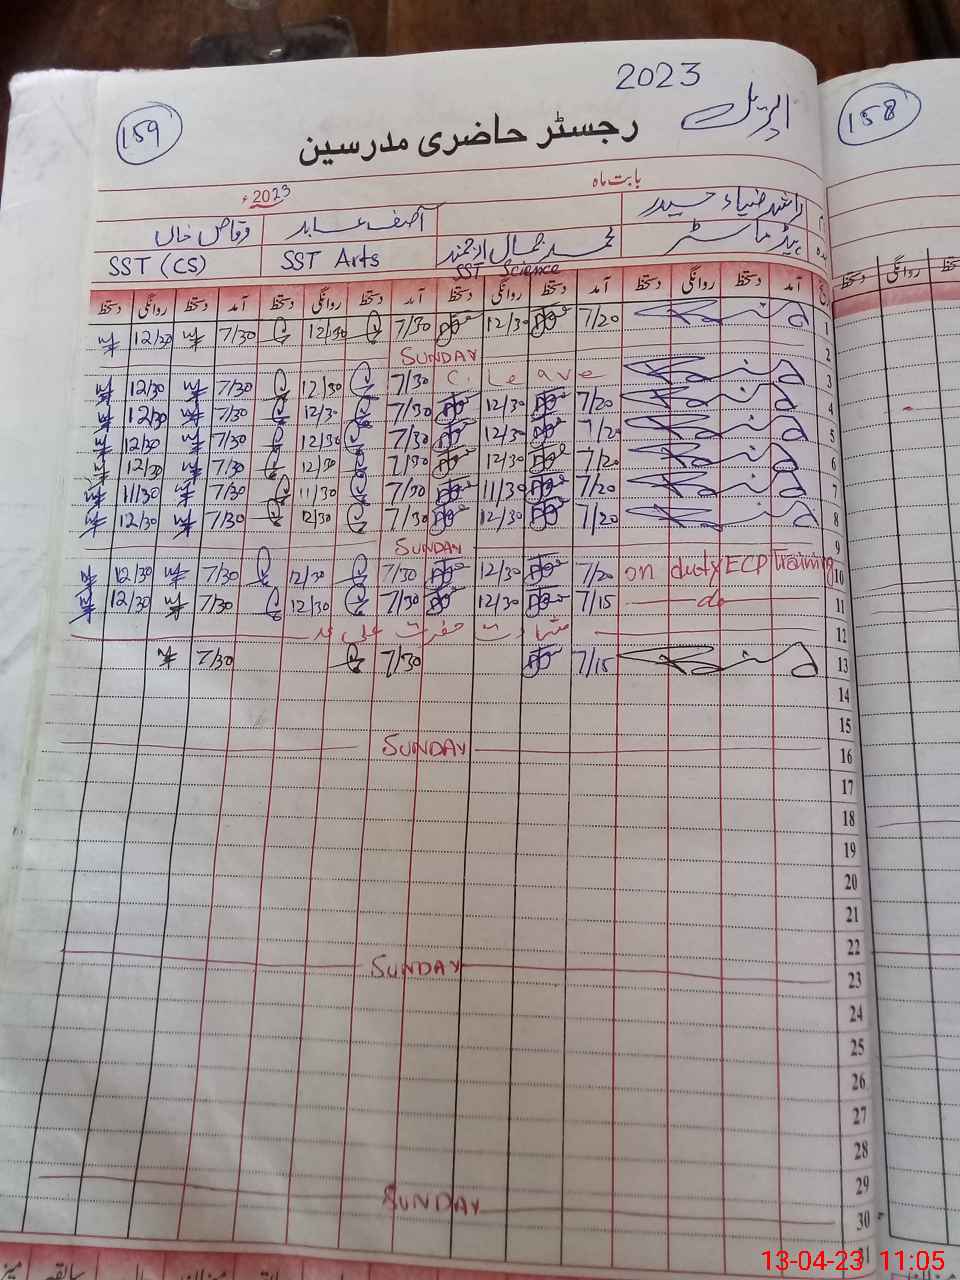 2023
159
رجسٹر حاضری مدرسین
اپریل
158
بابت ماہ
2023ء
راشد ضیاء حیدر
آصف عابد
وقاص خاں
ہیڈ ماسٹر
محمد جمال ارجمند
SST Arts
SST (CS)
SST Science
آمد دستخط روانگی دستخط آمد دستخط روانگی دستخط آمد دستخط روانگی دستخط آمد دستخط روانگی دستخط
روانگی
1 7/20 12/30 7/30 12/30 7/30 12/30
2 SUNDAY
3 C. Leave 7/30 12/30 7/30 12/30
4 7/20 12/30 7/30 12/30 7/30 12/30
5 7/20 12/30 7/30 12/30 7/30 12/30
6 7/20 12/30 7/30 12/30 7/30 12/30
7 7/20 11/30 7/30 11/30 7/30 11/30
8 7/20 12/30 7/30 12/30 7/30 12/30
9 SUNDAY
10 on duty ECP Training 7/20 12/30 7/30 12/30 7/30 12/30
11 do 7/15 12/30 7/30 12/30 7/30 12/30
12 شہادت حضرت علی
13 7/15 7/30 7/30
14
15
16 SUNDAY
17
18
19
20
21
22
23 SUNDAY
24
25
26
27
28
29
30 SUNDAY
31
13-04-23 11:05